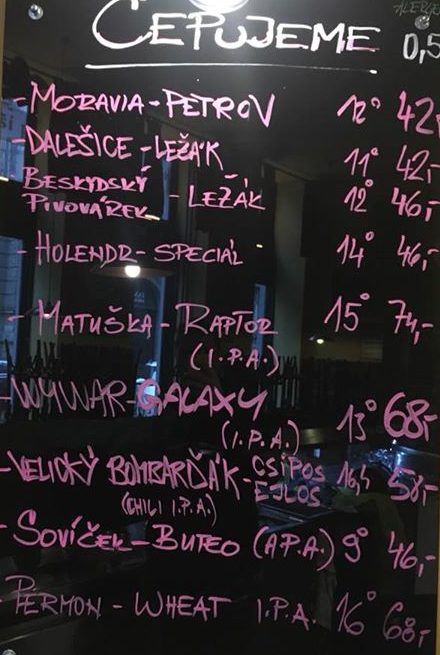 ČEPUJEME 0,5
- MORAVIA - PETROV 12° 42,-
- DALEŠICE - LEŽÁK 11° 42,-
BESKYDSKÝ PIVOVÁREK - LEŽÁK 12° 46,-
- HOLENDR - SPECIÁL 14° 46,-
- MATUŠKA - RAPTOR 15° 74,-
(I.P.A.)
- WYWAR - GALAXY 13° 68,-
(I.P.A.)
- VELICKÝ BOMBARĎÁK - CSÍPŐS EJLOS 16,4 58,-
(CHILI I.P.A.)
- SOVÍČEK - BUTEO (A.P.A.) 9° 46,-
- PERMON - WHEAT I.P.A. 16° 68,-